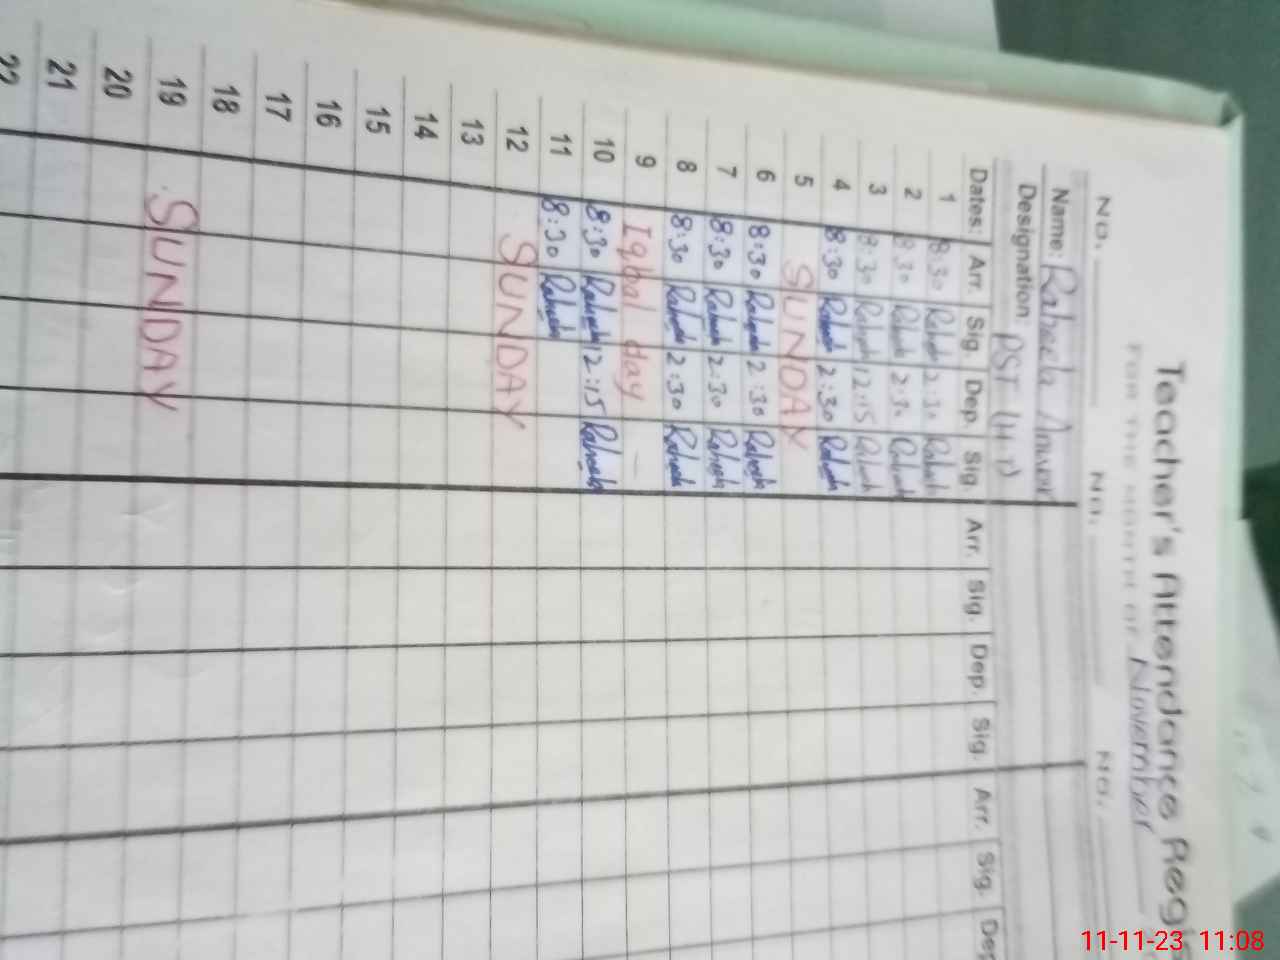 Teacher's Attendance Reg
FOR THE MONTH OF November
No. No. No.
Name: Raheela Anwar
Designation: PST (H.T)
Dates: Arr. Sig. Dep. Sig. Arr. Sig. Dep. Sig. Arr. Sig. Dep
1 8:30 Raheela 2:30 Raheela
2 8:30 Raheela 2:30 Raheela
3 8:30 Raheela 12:15 Raheela
4 8:30 Raheela 2:30 Raheela
5 SUNDAY
6 8:30 Raheela 2:30 Raheela
7 8:30 Raheela 2:30 Raheela
8 8:30 Raheela 2:30 Raheela
9 Iqbal day —
10 8:30 Raheela 12:15 Raheela
11 8:30 Raheela
12 SUNDAY
13
14
15
16
17
18
19 SUNDAY
20
21
22
11-11-23 11:08